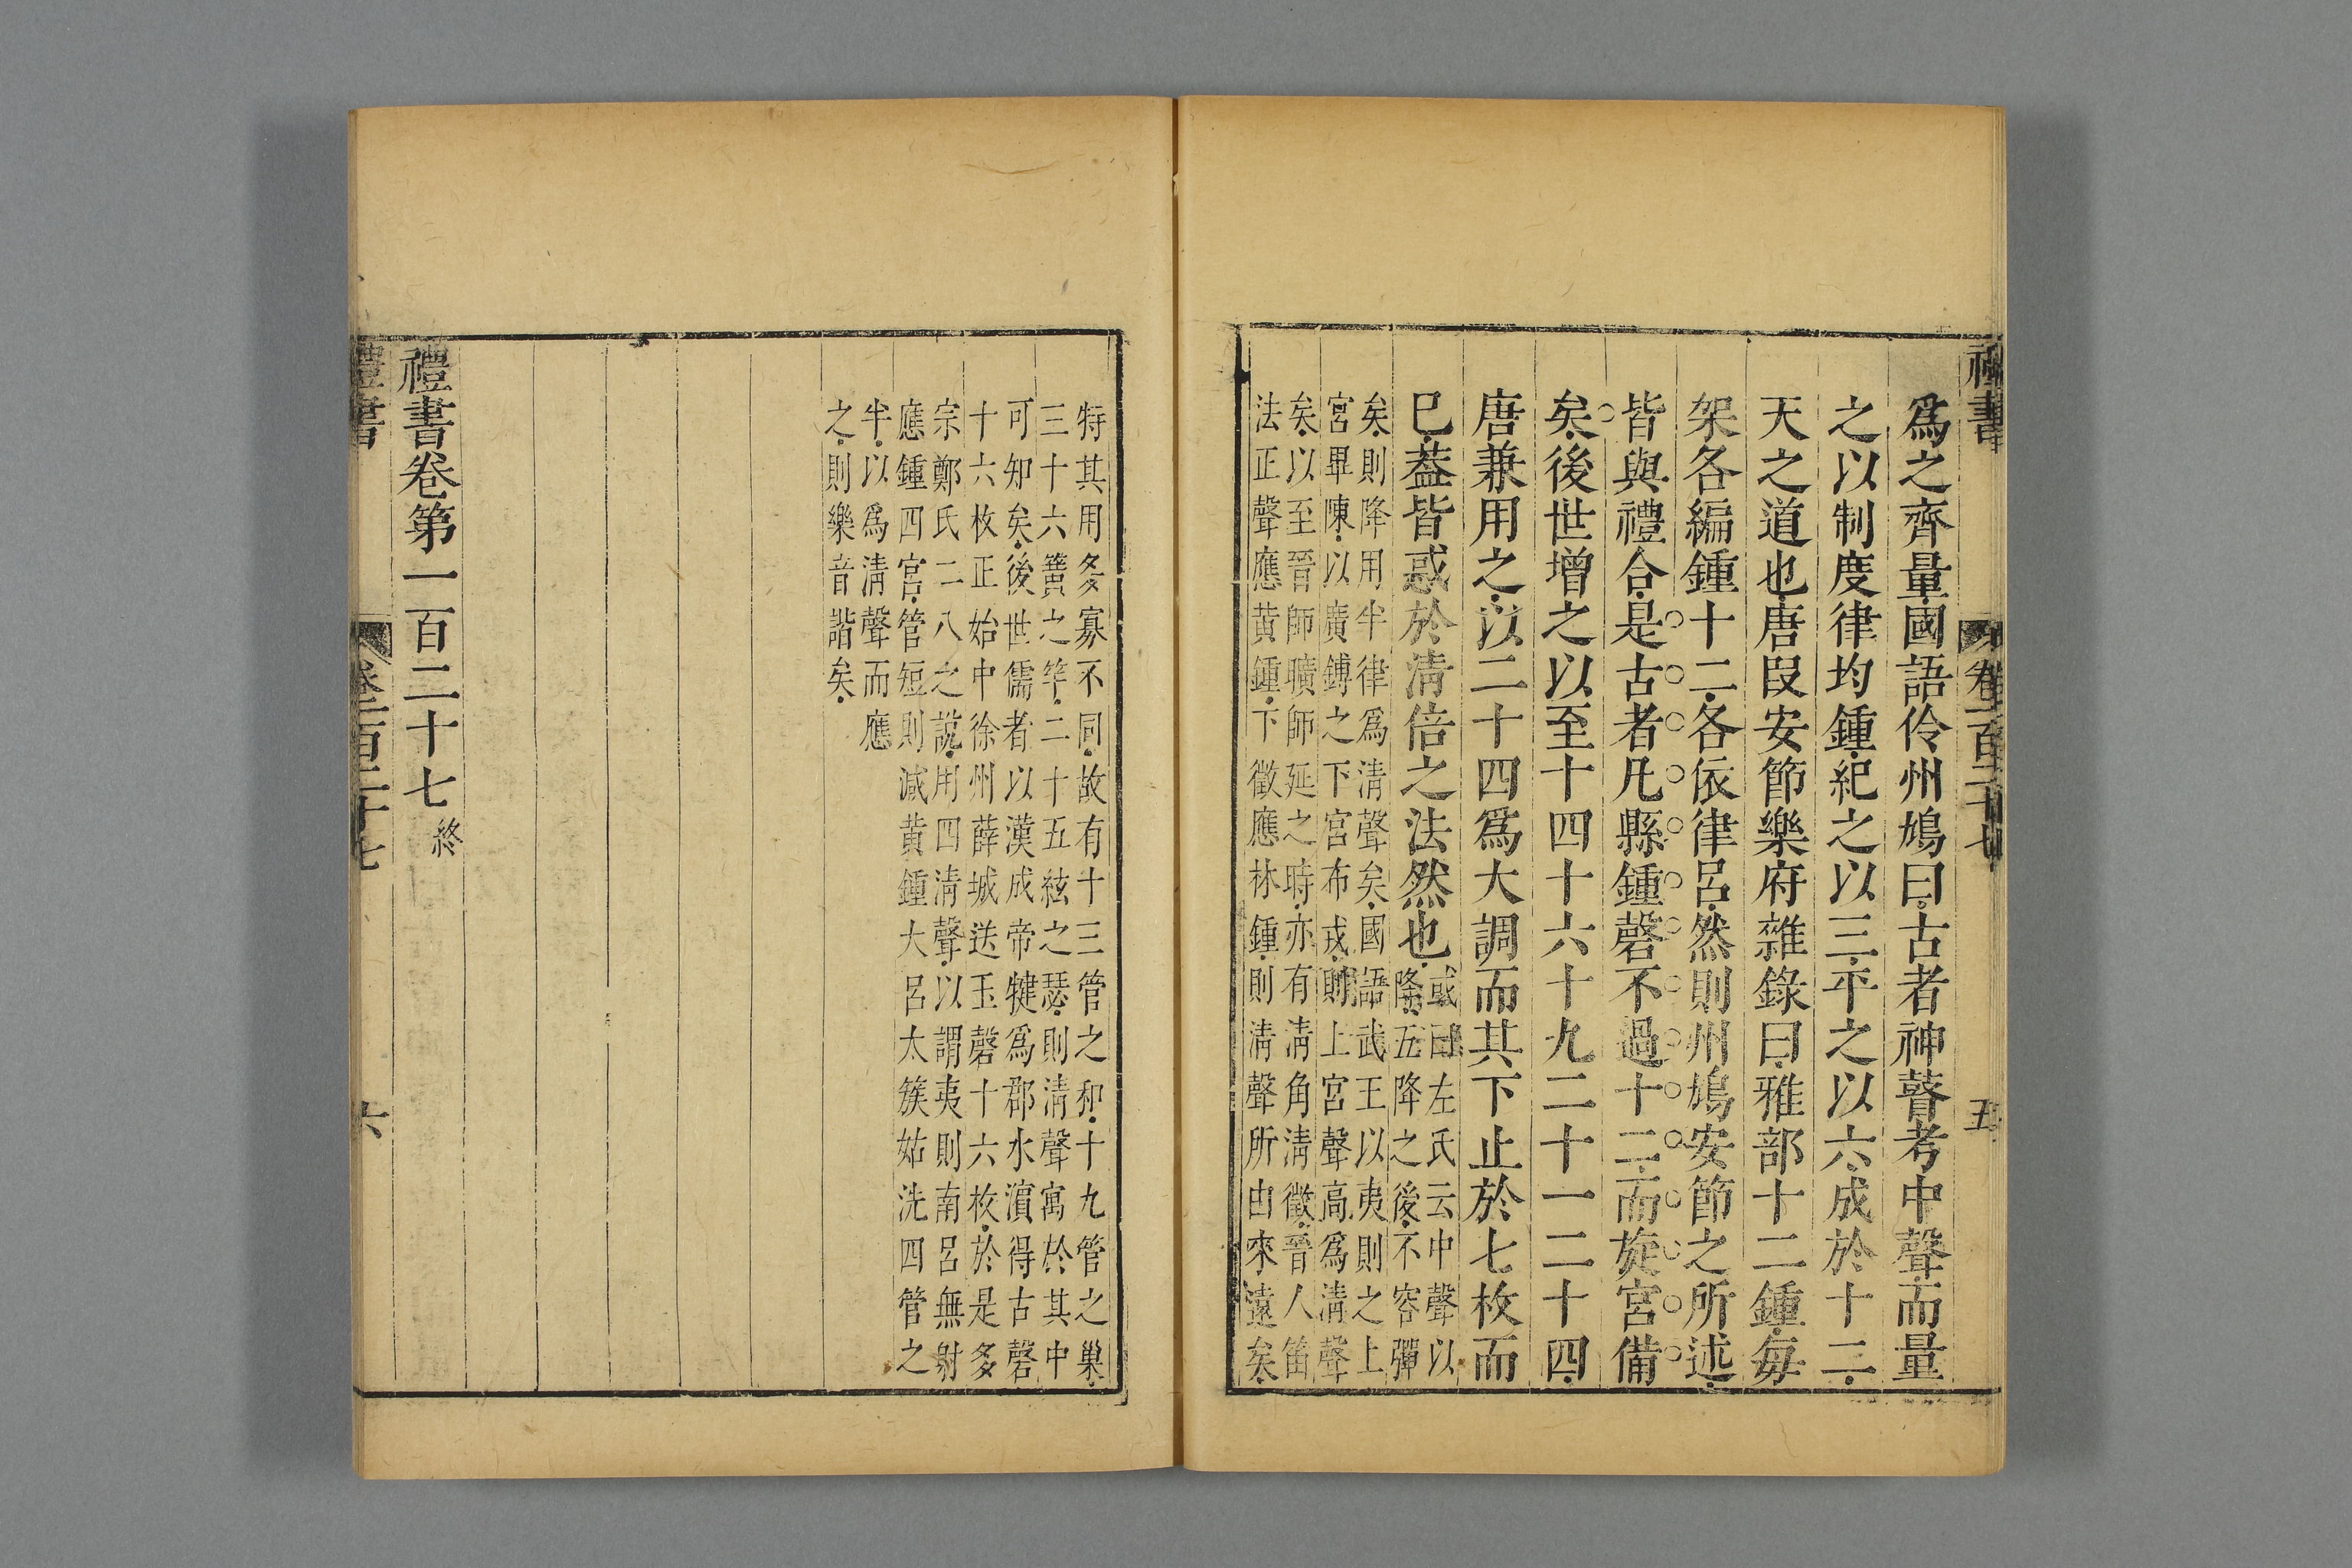 禮書
卷一百二十七
五
爲之齊量國語伶州鳩曰古者神瞽考中聲而量
之以制度律均鍾紀之以三平之以六成於十二
天之道也唐段安節樂府雜錄曰雅部十二鍾每
架各編鍾十二各依律呂然則州鳩安節之所述
皆與禮合是古者凡縣鍾磬不過十二而旋宮備
矣後世增之以至十四十六十九二十一二十四
唐兼用之以二十四爲大調而其下止於七枚而
已葢皆惑於淸倍之法然也
或曰左氏云中聲以
降五降之後不容彈
矣則降用半律爲淸聲矣國語武王以夷則之上
宮畢陳以廣鎛之下宮布戎則上宮聲高爲淸聲
矣以至晉師曠師延之時亦有淸角淸徵晉人笛
法正聲應黃鍾下徵應林鍾則淸聲所由來遠矣
特其用多寡不同故有十三管之和十九管之巢
三十六簧之竽二十五絃之瑟則淸聲寓於其中
可知矣後世儒者以漢成帝犍爲郡水濵得古磬
十六枚正始中徐州薛城送玉磬十六枚於是多
宗鄭氏二八之說用四淸聲以謂夷則南呂無射
應鍾四宮管短則減黃鍾大呂太簇姑洗四管之
半以爲淸聲而應
之則樂音諧矣
禮書卷第一百二十七終
禮書
卷一百二十七
六